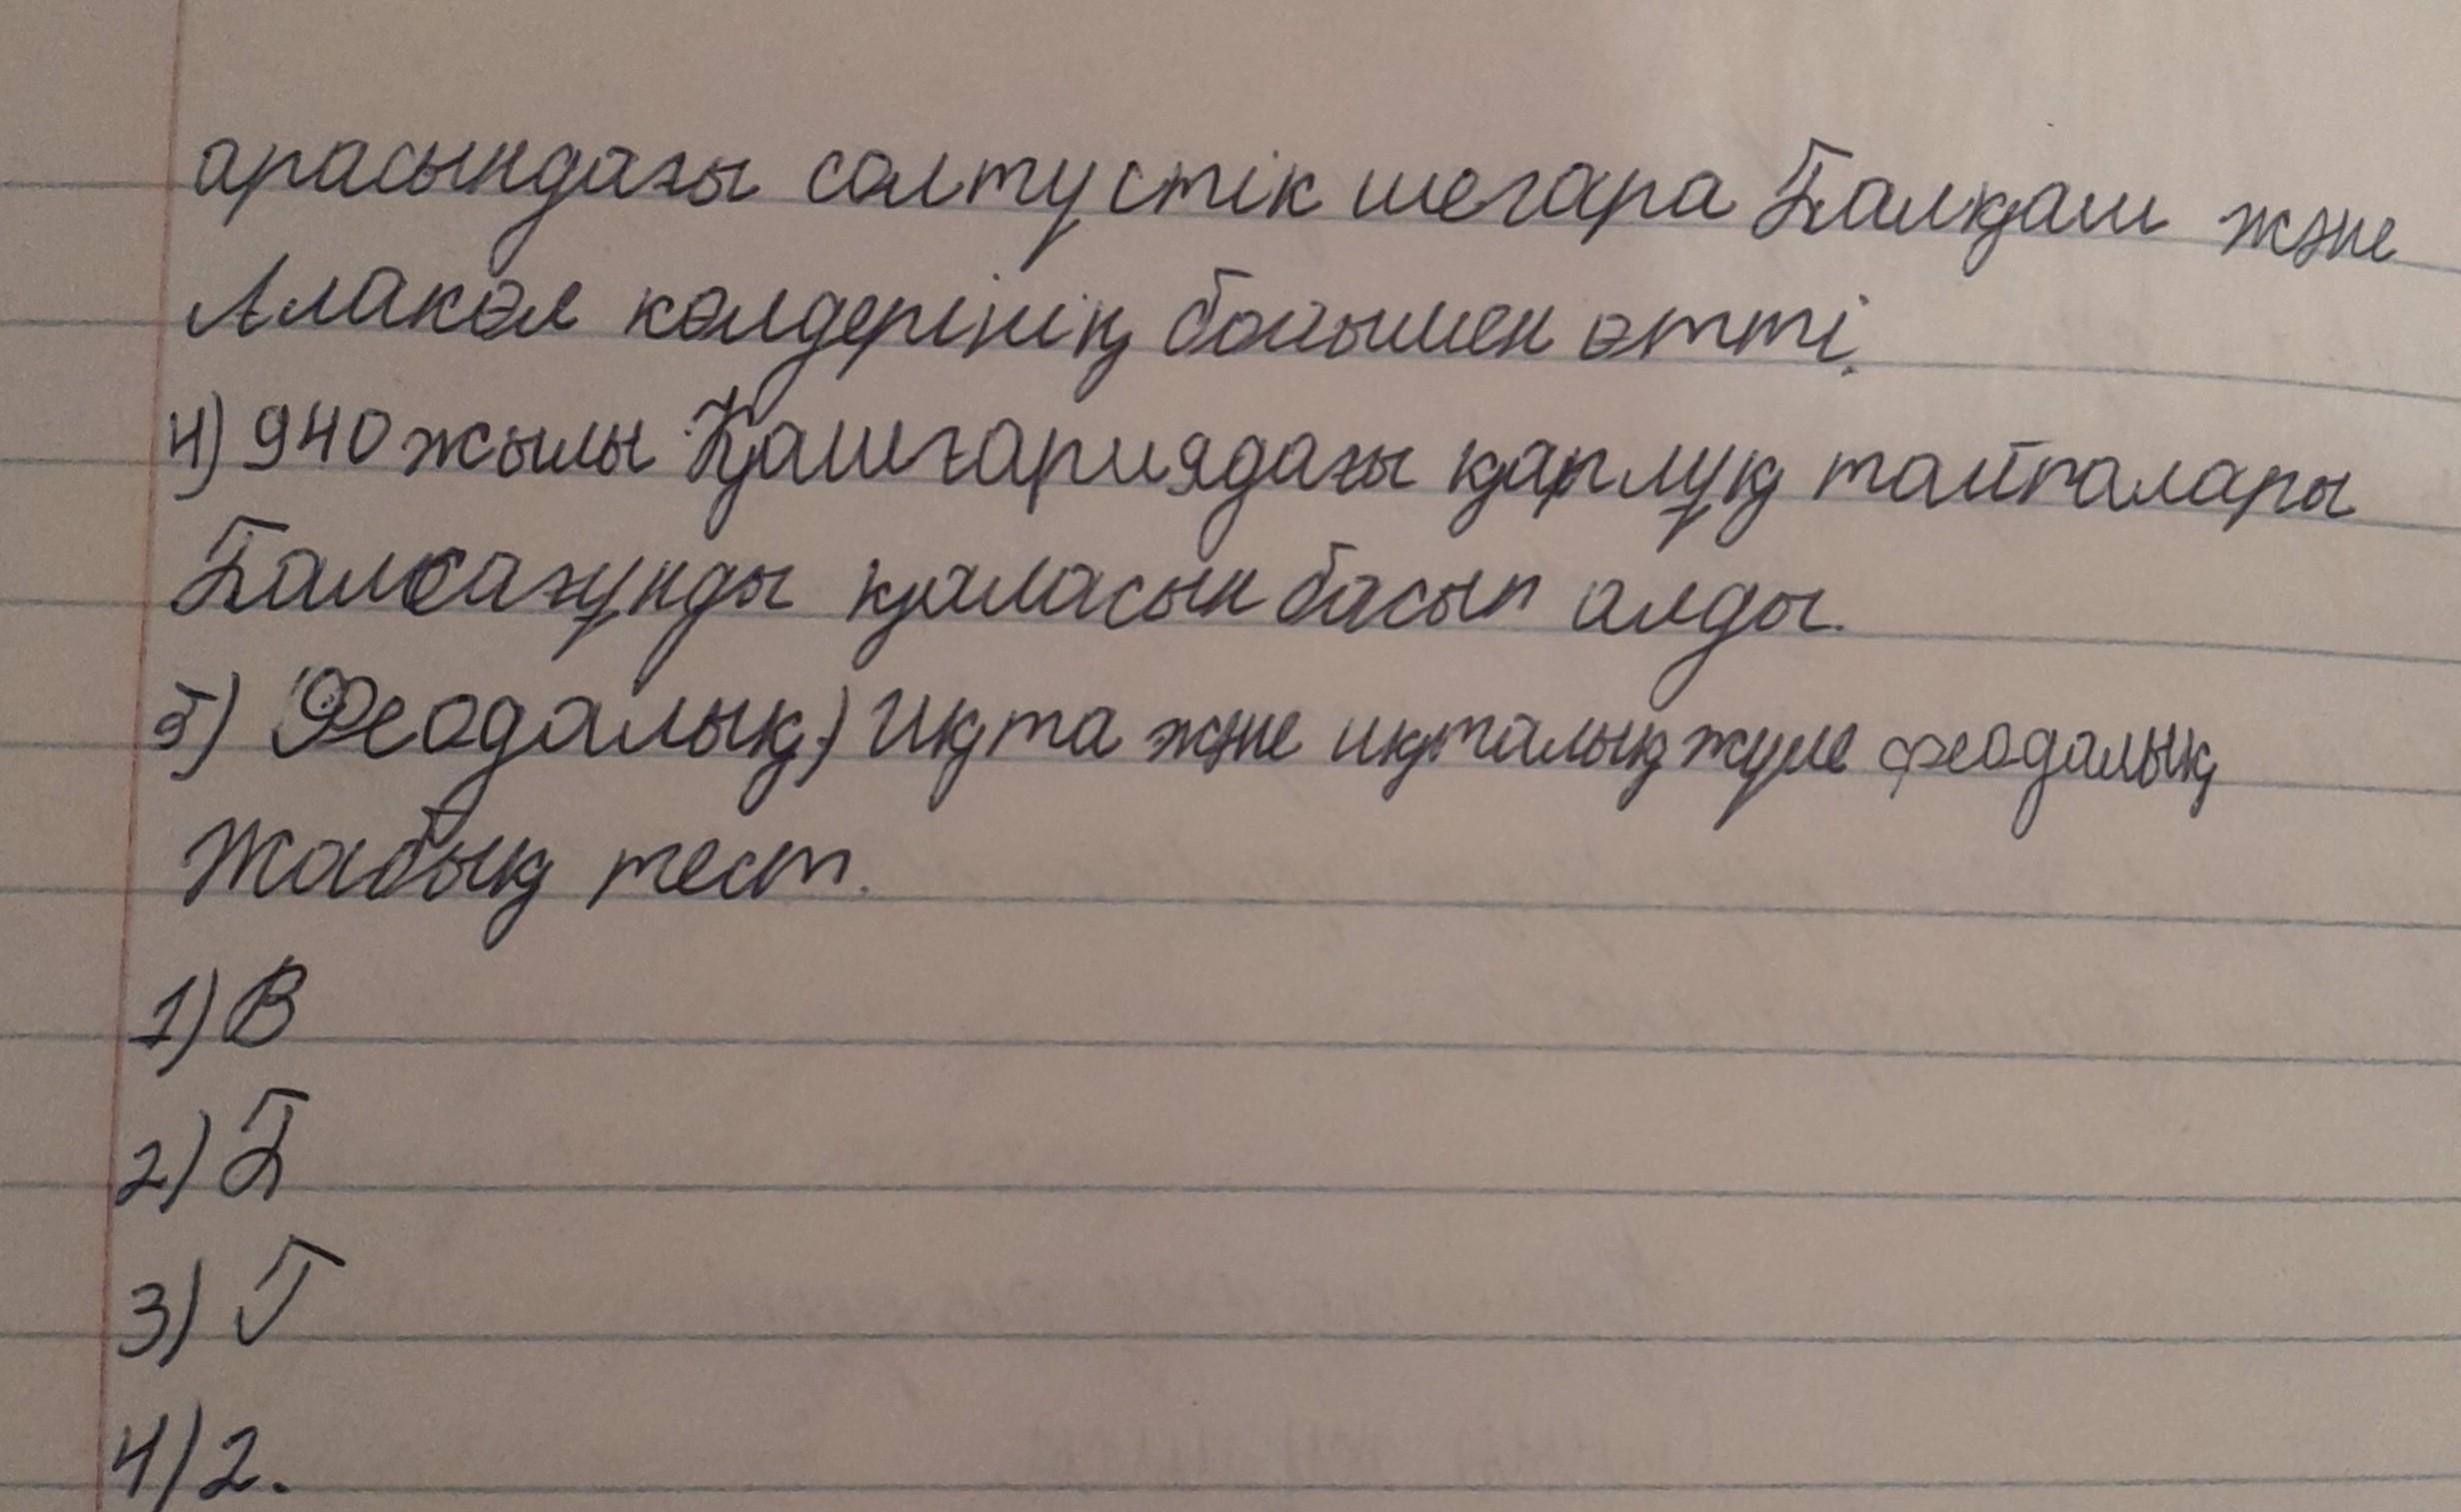 арасындағы солтустік шегара Балқаш және
Алакөл көлдерінің бойымен өтті.
4) 940 жылы Қашғариядағы қарлұқ тайпалары
Баласағұнды қаласын басып алды.
5) Феодалық) Иқта және иқталық жүие феодалық
Жабық тест.
1) В
2) Б
3) Г
4) 2.